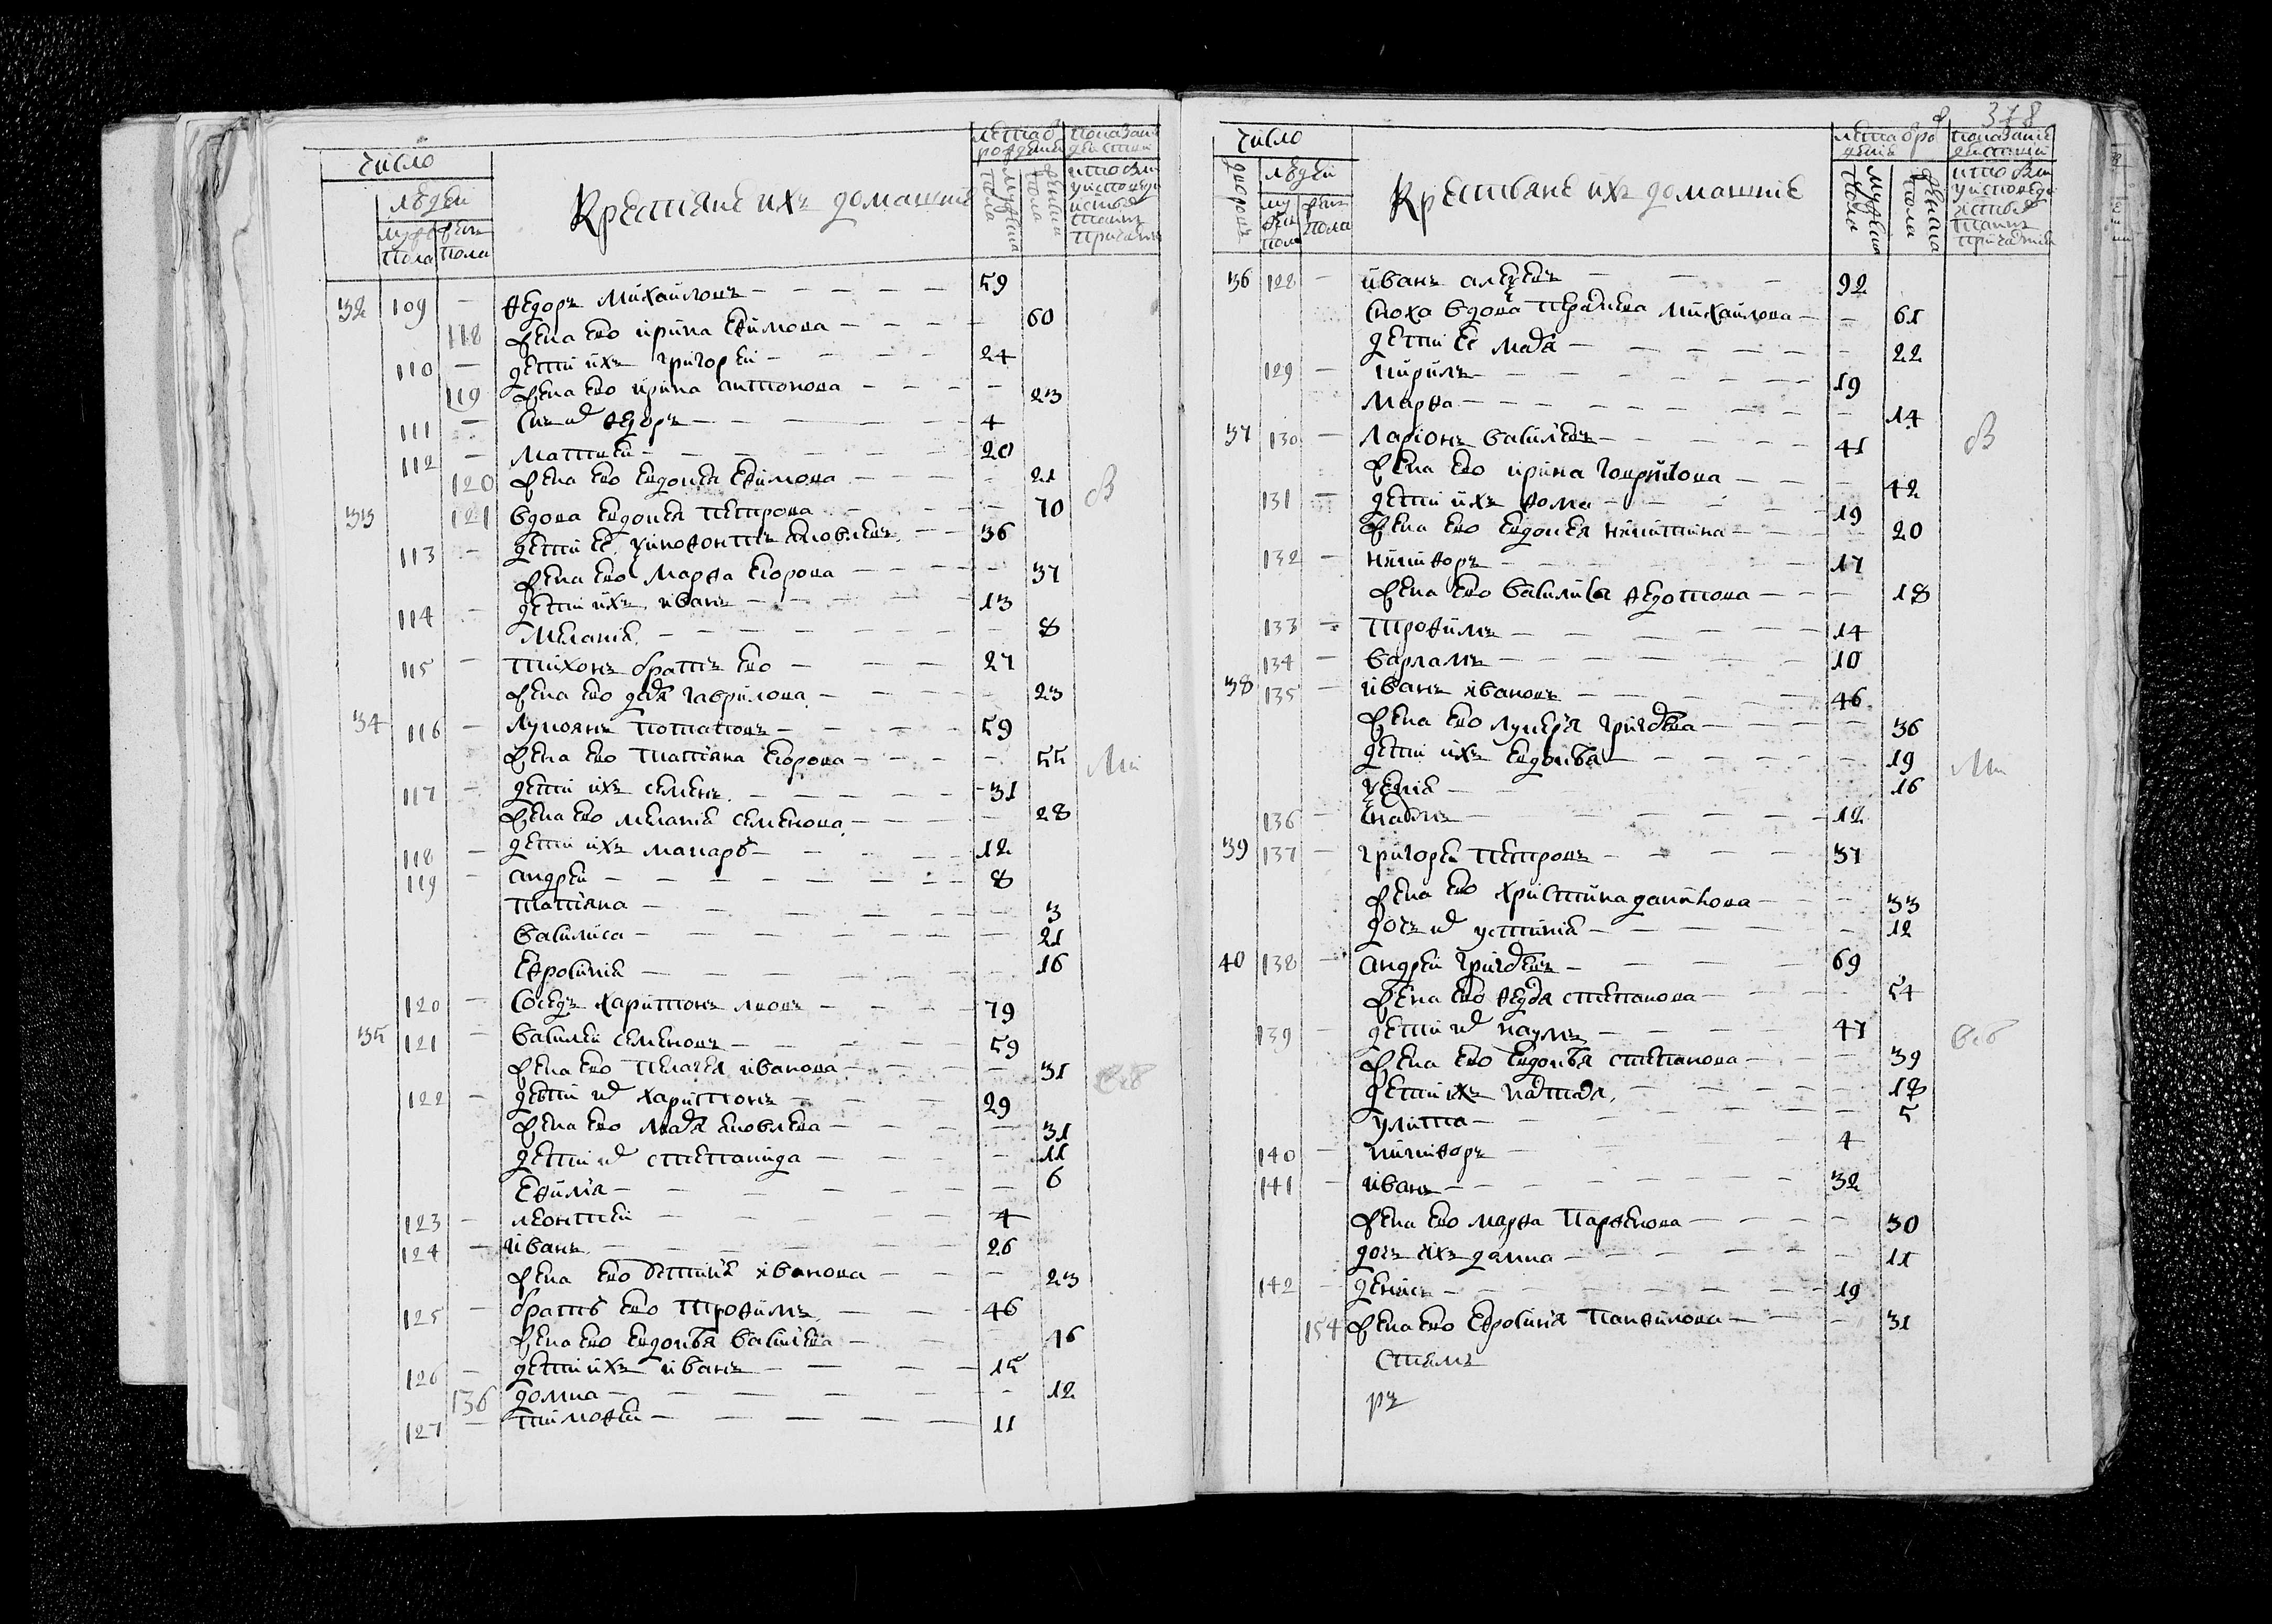 число
людей
муже пола
жен пола
Крестьяне ихъ домашніе
лета о рождени
мужеска пола
женска пола
показані действи
кто был у исповеди и святых таинъ причастия
32 109 — ѳедоръ Михайловъ — 59
118 жена ево ирина Еѳимова — 60
110 — дети ихъ григорей — 24
119 жена ево ирина антонова — 23
111 — Сынъ ихъ ѳедоръ — 4
112 — Матвей — 20
120 жена ево Евдокея Еѳимова — 21
33 121 вдова Евдокея Петрова — 70
113 — дети ее ѯиноѳонтъ яковлевъ — 36
жена ево Марѳа Егорова — 37
114 — дети ихъ иванъ — 13
Меланія — 8
115 — Тихонъ братъ ево — 27
жена ево дарья гаврилова — 23
34 116 — Лукоянъ Потаповъ — 59
жена ево Татіяна Егорова — 55
117 — дети ихъ семенъ — 31
жена ево меланія семенова — 28
118 — дети ихъ макаръ — 12
119 — андрей — 8
Татіяна — 3
Василиса — 21
Еѳросинія — 16
120 — Соседъ харитонъ львовъ — 79
35 121 — Василей семеновъ — 59
жена ево Пелагея иванова — 31
122 — дети ихъ харитонъ — 29
жена ево Марья яковлева — 31
дети ихъ степанида — 11
Еѳимія — 6
123 — леонтей — 4
124 — иванъ — 26
жена ево устинія иванова — 23
125 — братъ ево Троѳимъ — 46
жена ево Евдокѣя василева — 46
126 — дети ихъ иванъ — 15
136 домна — 12
127 — тимоѳей — 11
378
число
дворовъ
людей
муже ска пола
жен пола
Крестьяне ихъ домашніе
лета о рождения
мужеска пола
женска пола
показаніе действий
кто был у исповеди и святых таинъ причастия
36 128 — иванъ алеѯеевъ — 92
Сноха вдова Парасковья Михайлова — 61
дети ее марья — 22
129 — кирилъ — 19
Марѳа — 14
37 130 — Ларіонъ василевъ — 41
жена ево ирина гаврилова — 42
131 — дети ихъ ѳома — 19
жена ево Евдокея никитина — 20
132 — никиѳоръ — 17
жена ево василиса ѳедотова — 18
133 — Троѳимъ — 14
134 — варламъ — 10
38 135 — иванъ ивановъ — 46
жена ево лукерія григорева — 36
дети ихъ Евдокѣя — 19
ѯенія — 16
136 — — 12
39 137 — григорей Петровъ — 37
жена ево христина данилова — 33
дочь их устинія — 12
40 138 — андрей григоревъ — 69
жена ево ѳедора степанова — 54
139 — дети их наумъ — 47
жена ево Евдокѣя степанова — 39
дети ихъ наталя — 18
улита — 5
140 — никиѳоръ — 4
141 — иванъ — 32
жена ево марѳа Парѳенова — 30
дочь ихъ домна — 11
142 — денисъ — 19
154 жена ево Еѳросинія Панѳилова — 31